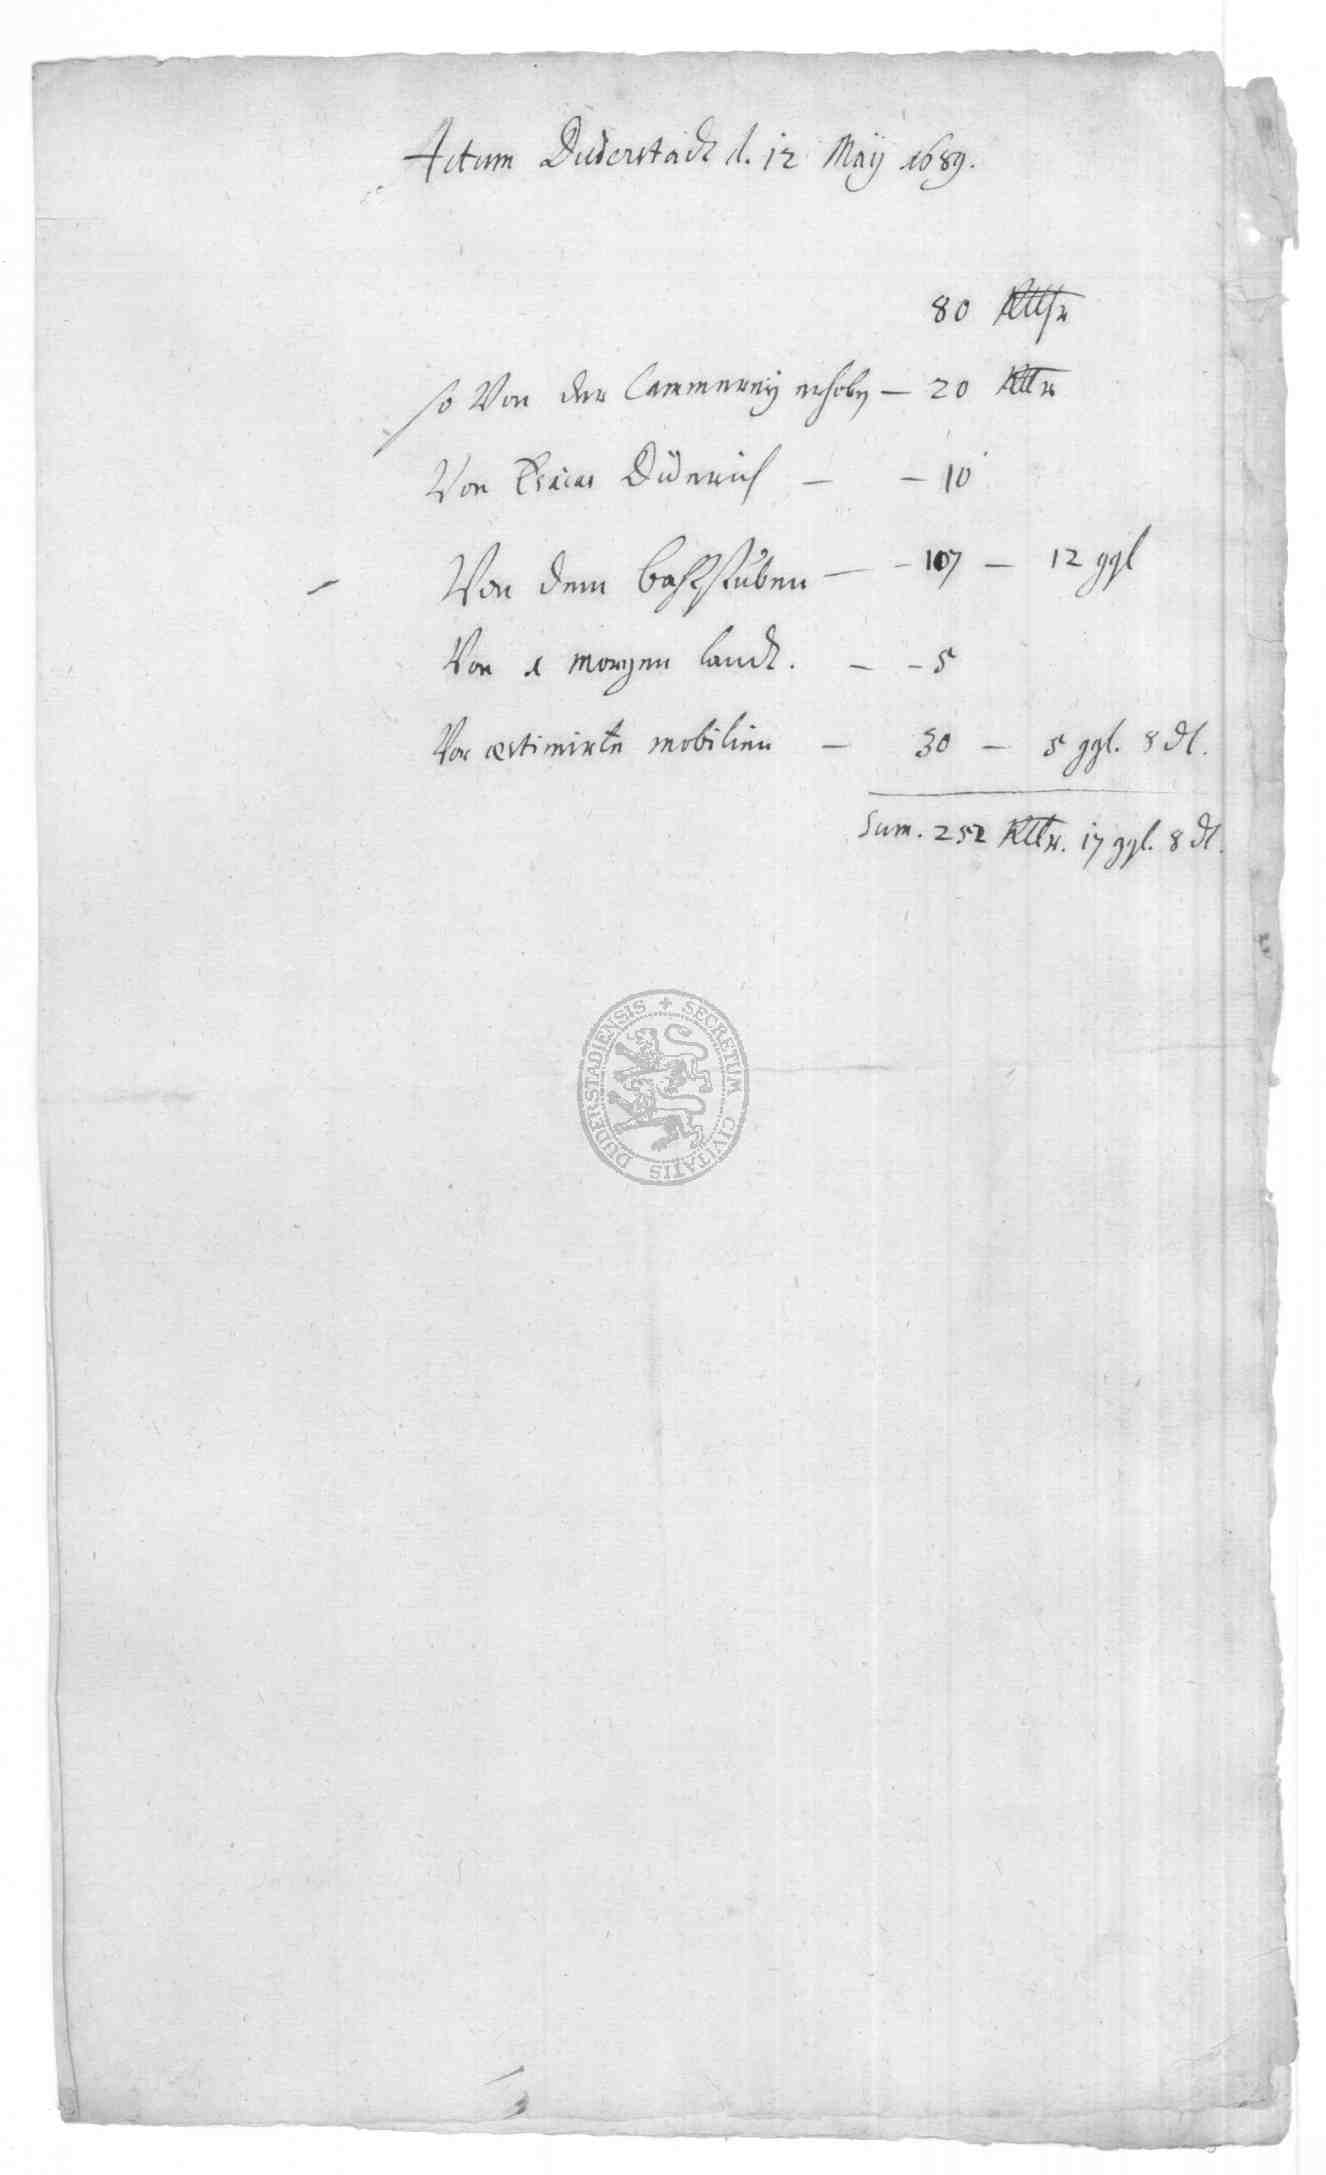 Actum Duderstadt d. 12 Maÿ 1689.
80 Rthlr
so Von der Cammereÿ erhoben — 20 Rthlr
Von Esaias Diderich — — 10
Von dem — — 107 — 12 ggl
Von 1 morgen landt. — — 5
Vor æstimirte mobilien — 30 — 5 ggl. 8 dl.
Sum. 252 Rthlr. 17 ggl. 8 dl.
SECRETUM CIVITATIS DUDERSTADIENSIS